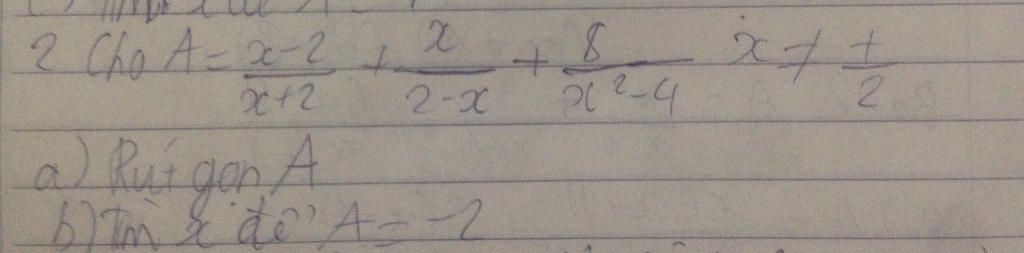 2 Cho A = \frac{x-2}{x+2} + \frac{x}{2-x} + \frac{8}{x^2-4} x ≠ ± 2
a) Rút gọn A
b) Tìm x để A = -2